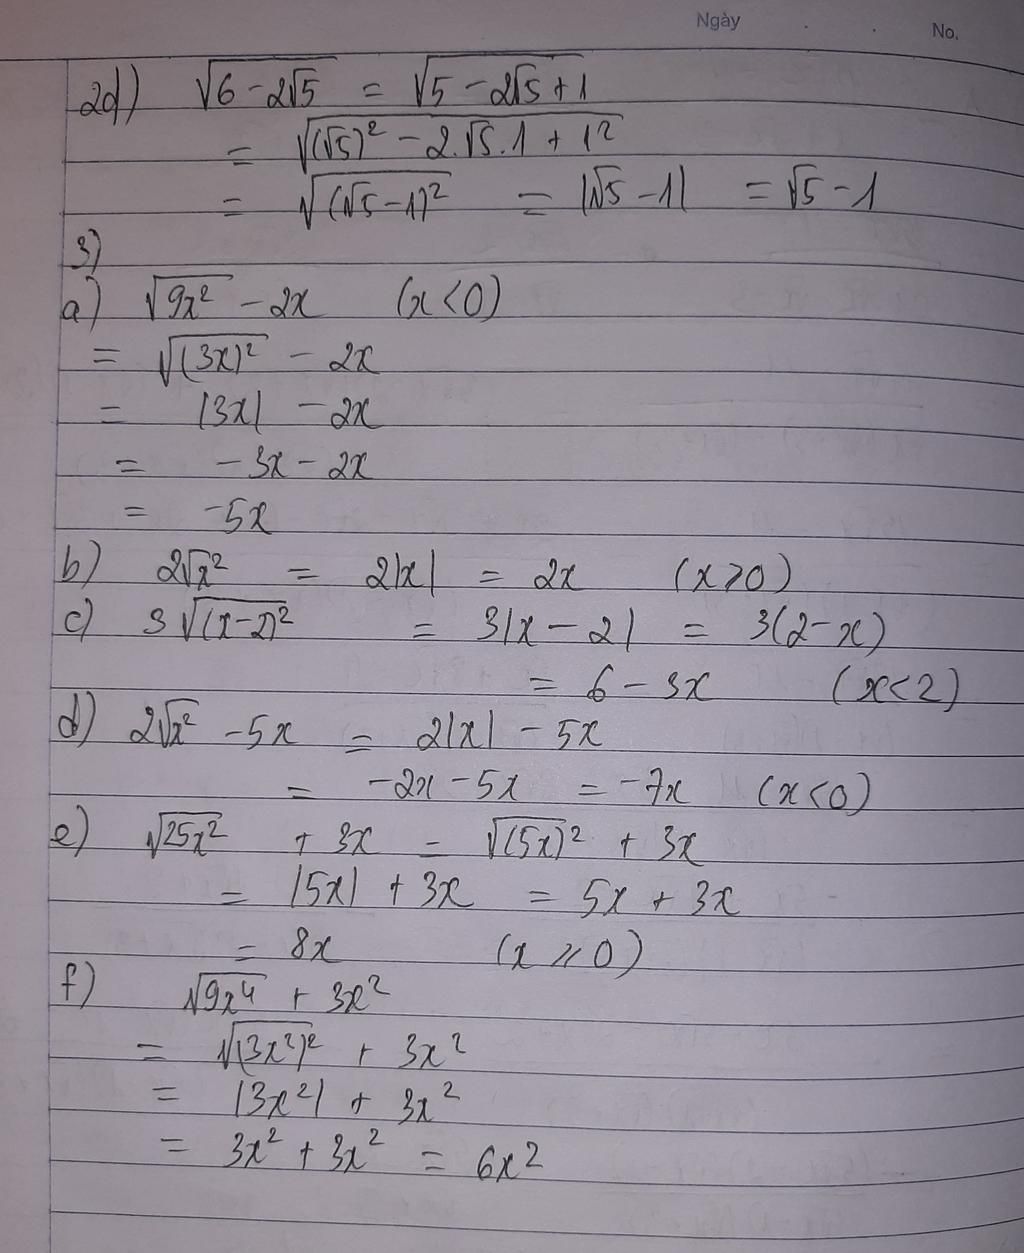 Ngày
No.
2d) √(6 - 2√5) = √(5 - 2√5 + 1)
= √((√5)² - 2.√5.1 + 1²)
= √((√5 - 1)²) = |√5 - 1| = √5 - 1
3)
a) √(9x²) - 2x (x < 0)
= √((3x)²) - 2x
= |3x| - 2x
= - 3x - 2x
= -5x
b) 2√x² = 2|x| = 2x (x > 0)
c) 3√((x-2)²) = 3|x - 2| = 3(2 - x)
= 6 - 3x (x < 2)
d) 2√x² - 5x = 2|x| - 5x
= -2x - 5x = -7x (x < 0)
e) √(25x²) + 3x = √((5x)²) + 3x
= |5x| + 3x = 5x + 3x
= 8x (x ⩾ 0)
f) √(9x⁴) + 3x²
= √((3x²)²) + 3x²
= |3x²| + 3x²
= 3x² + 3x² = 6x²